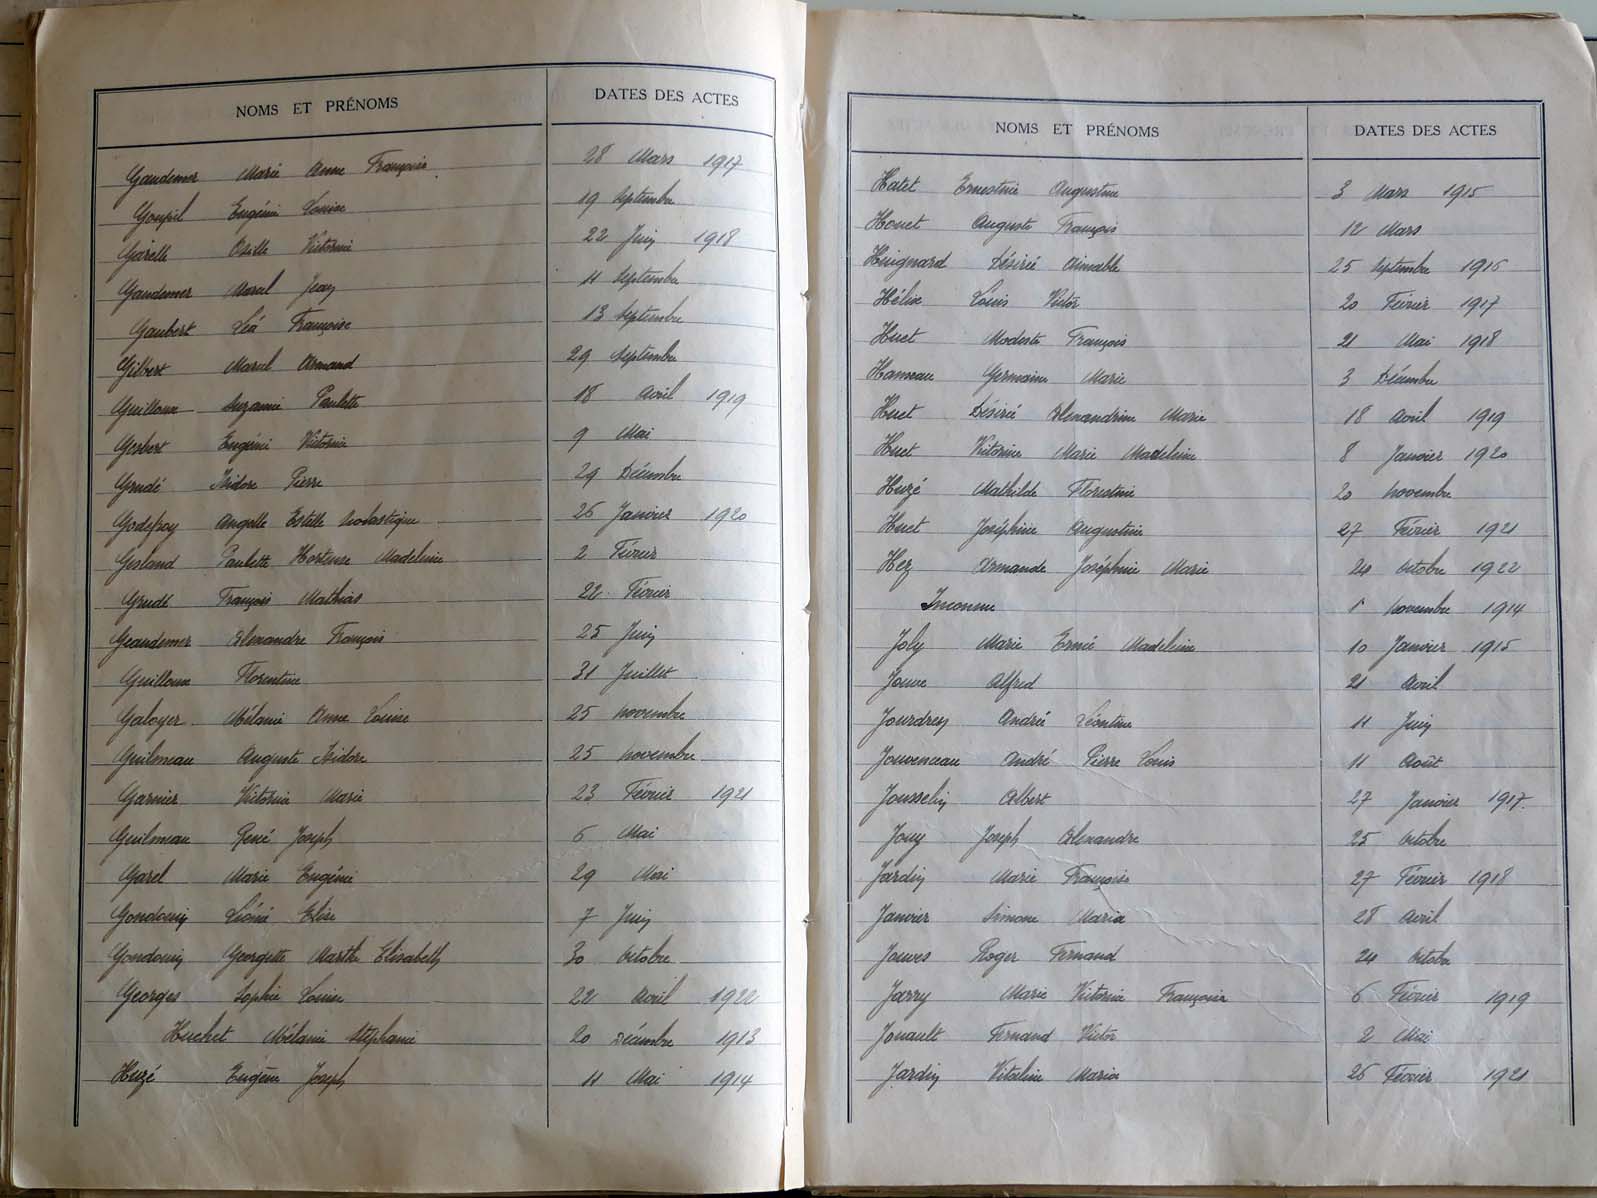 NOMS ET PRÉNOMS DATES DES ACTES
Gaudemer Marie Anne Françoise 28 Mars 1917
Goupil Eugénie Louise 19 Septembre
Garelle Odille Victorine 22 Juin 1918
Gaudemer Marcel Jean 11 Septembre
Gaubert Léa Françoise 13 Septembre
Gilbert Marcel Armand 29 Septembre
Guilloux Suzanne Paulette 18 Avril 1919
Gerbert Eugénie Victorine 9 Mai
Grudé Isidore Pierre 29 Décembre
Godefroy Angelle Estelle Scolastique 26 Janvier 1920
Gisland Paulette Hortense Madeleine 2 Février
Grudé François Mathias 22 Février
Geandemer Alexandre François 25 Juin
Guilloux Florentine 31 Juillet
Galoyer Mélanie Anne Louise 25 novembre
Guilmeau Auguste Isidore 25 novembre
Garnier Victorine Marie 23 Février 1921
Guilmeau René Joseph 6 Mai
Garel Marie Eugénie 29 Mai
Gondouin Léonie Elise 7 Juin
Gondouin Georgette Marthe Elisabeth 30 Octobre
Georges Sophie Louise 22 Avril 1922
Huchet Mélanie Stéphanie 20 Décembre 1913
Huzé Eugène Joseph 11 Mai 1914
NOMS ET PRÉNOMS DATES DES ACTES
Hatet Ernestine Augustine 3 Mars 1915
Houet Auguste François 12 Mars
Huignard Désirée Aimable 25 Septembre 1916
Héline Louis Victor 20 Février 1917
Huet Modeste François 21 Mai 1918
Hameau Germaine Marie 3 Décembre
Huet Désirée Alexandrine Marie 18 Avril 1919
Huet Victorine Marie Madeleine 8 Janvier 1920
Huzé Mathilde Florestine 20 novembre
Huet Joséphine Augustine 27 Février 1921
Hez Armande Joséphine Marie 24 Octobre 1922
Inconnu 1 novembre 1914
Joly Marie Madeleine 10 Janvier 1915
Jouve Alfred 21 Avril
Jourdren André Léontine 11 Juin
Jouvenceau André Pierre Louis 11 Août
Jousselin Albert 27 Janvier 1917
Jouy Joseph Alexandre 25 Octobre
Jardin Marie Françoise 27 Février 1918
Janvier Simone Maria 28 Avril
Jouves Roger Fernand 24 Octobre
Jarry Marie Victorine Françoise 6 Février 1919
Jouault Fernand Victor 2 Mai
Jardin Vitaline Maria 26 Février 1921